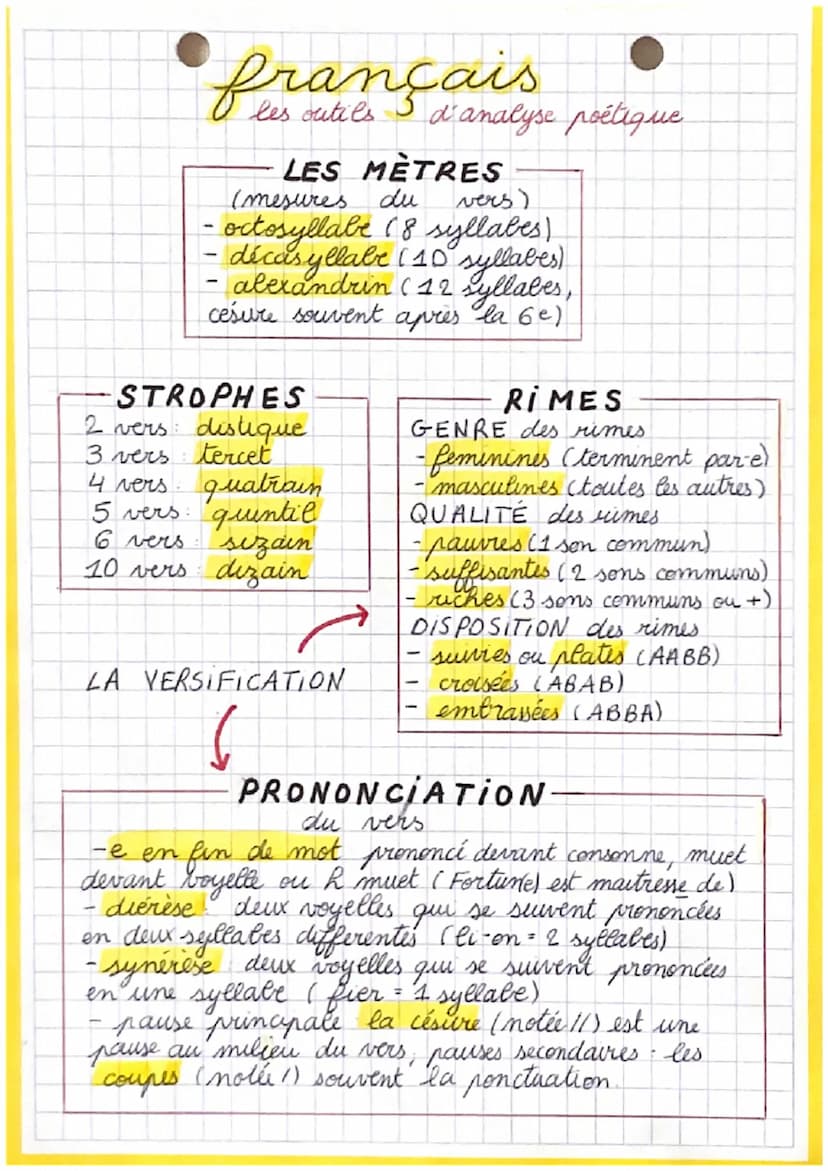 français
les outils d'analyse poétique
LES MÈTRES
(mesures du vers)
- octosyllabe (8 syllabes)
- décasyllabe (10 syllabes)
- alexandrin (12 syllabes,
césure souvent après la 6e)
STROPHES
2 vers : distique
3 vers : tercet
4 vers : quatrain
5 vers : quintil
6 vers : sizain
10 vers : dizain
RiMES
GENRE des rimes
- féminines (terminent par-e)
- masculines (toutes les autres)
QUALITÉ des rimes
- pauvres (1 son commun)
- suffisantes (2 sons communs)
- riches (3 sons communs ou +)
DISPOSITION des rimes
- suivies ou plates (AABB)
- croisées (ABAB)
- embrassées (ABBA)
LA VERSIFICATION
PRONONCiATiON
du vers
- e en fin de mot prononcé devant consonne, muet
devant voyelle ou h muet (Fortun(e) est maitresse de)
- diérèse : deux voyelles qui se suivent prononcées
en deux syllabes différentes (li-on = 2 syllabes)
- synérèse : deux voyelles qui se suivent prononcées
en une syllabe (fier = 1 syllabe)
- pause principale la césure (notée //) est une
pause au milieu du vers, pauses secondaires : les
coupes (notée /) souvent la ponctuation.